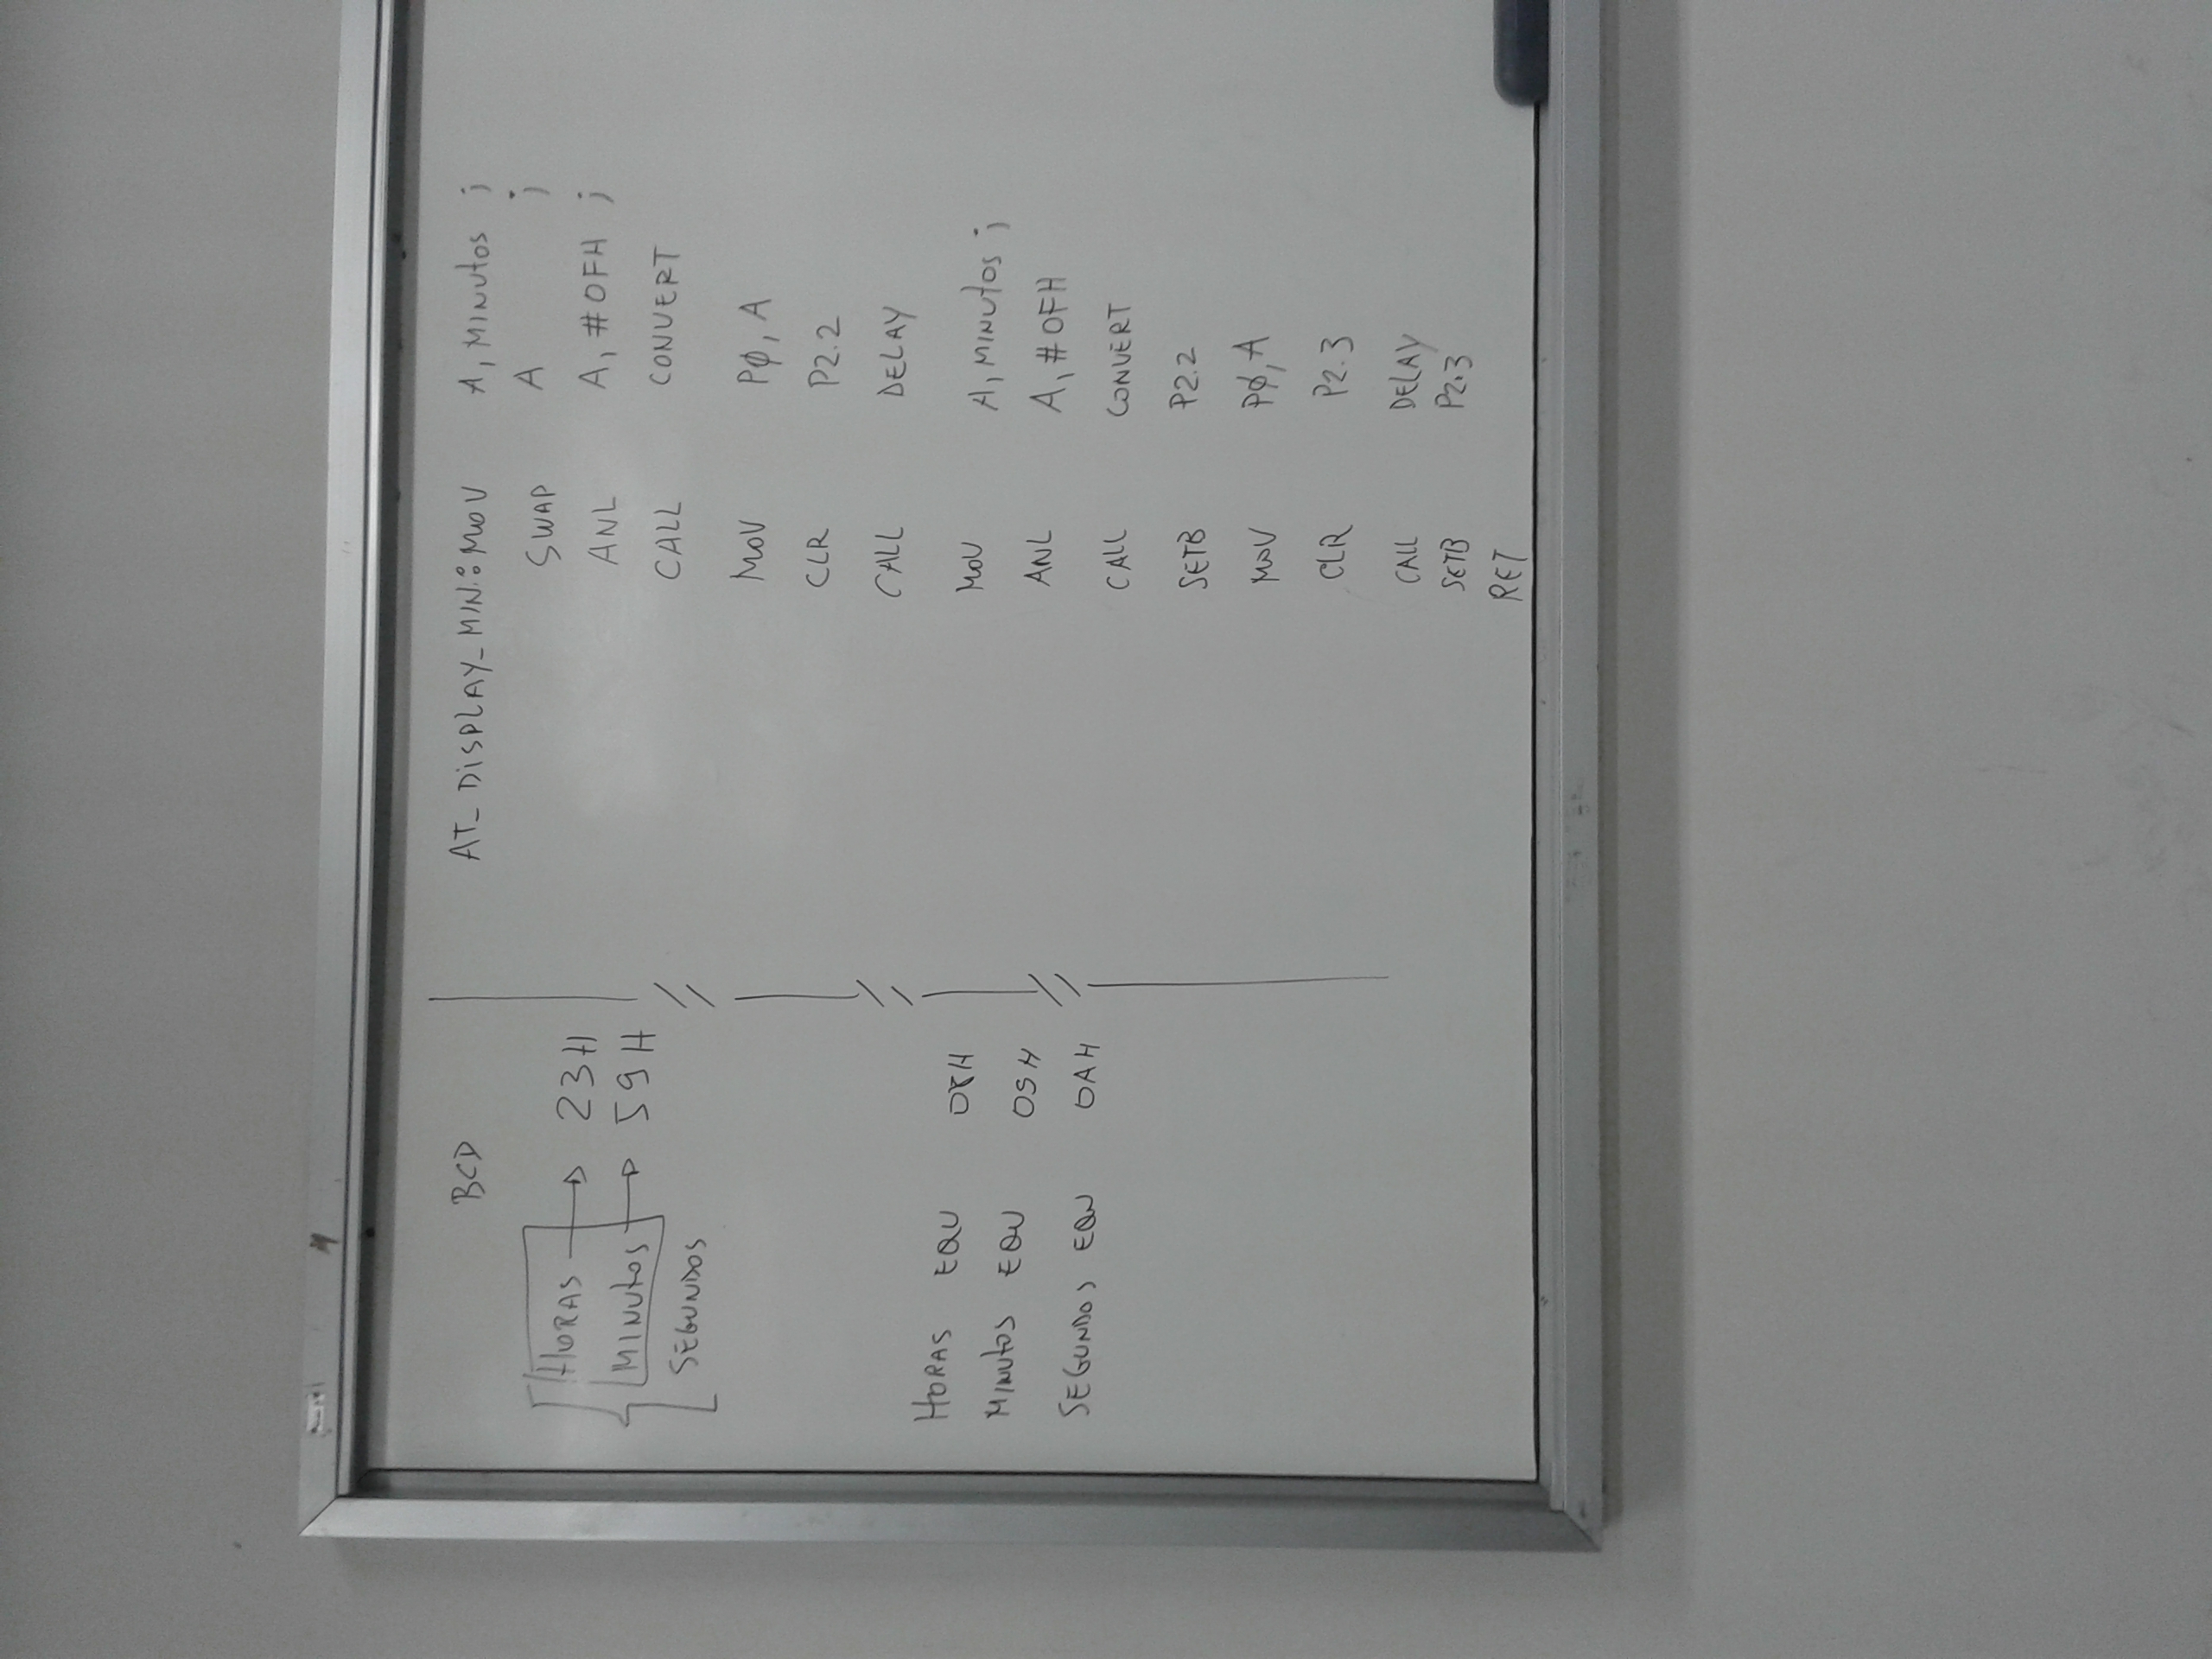 BCD
HORAS → 23H
MINUTOS → 59H
SEGUNDOS
HORAS EQU 08H
MINUTOS EQU 09H
SEGUNDOS EQU 0AH
AT_DISPLAY_MIN: MOV A, MINUTOS ;
SWAP A ;
ANL A, #0FH ;
CALL CONVERT
MOV P0, A
CLR P2.2
CALL DELAY
MOV A, MINUTOS ;
ANL A, #0FH
CALL CONVERT
SETB P2.2
MOV P0, A
CLR P2.3
CALL DELAY
SETB P2.3
RET